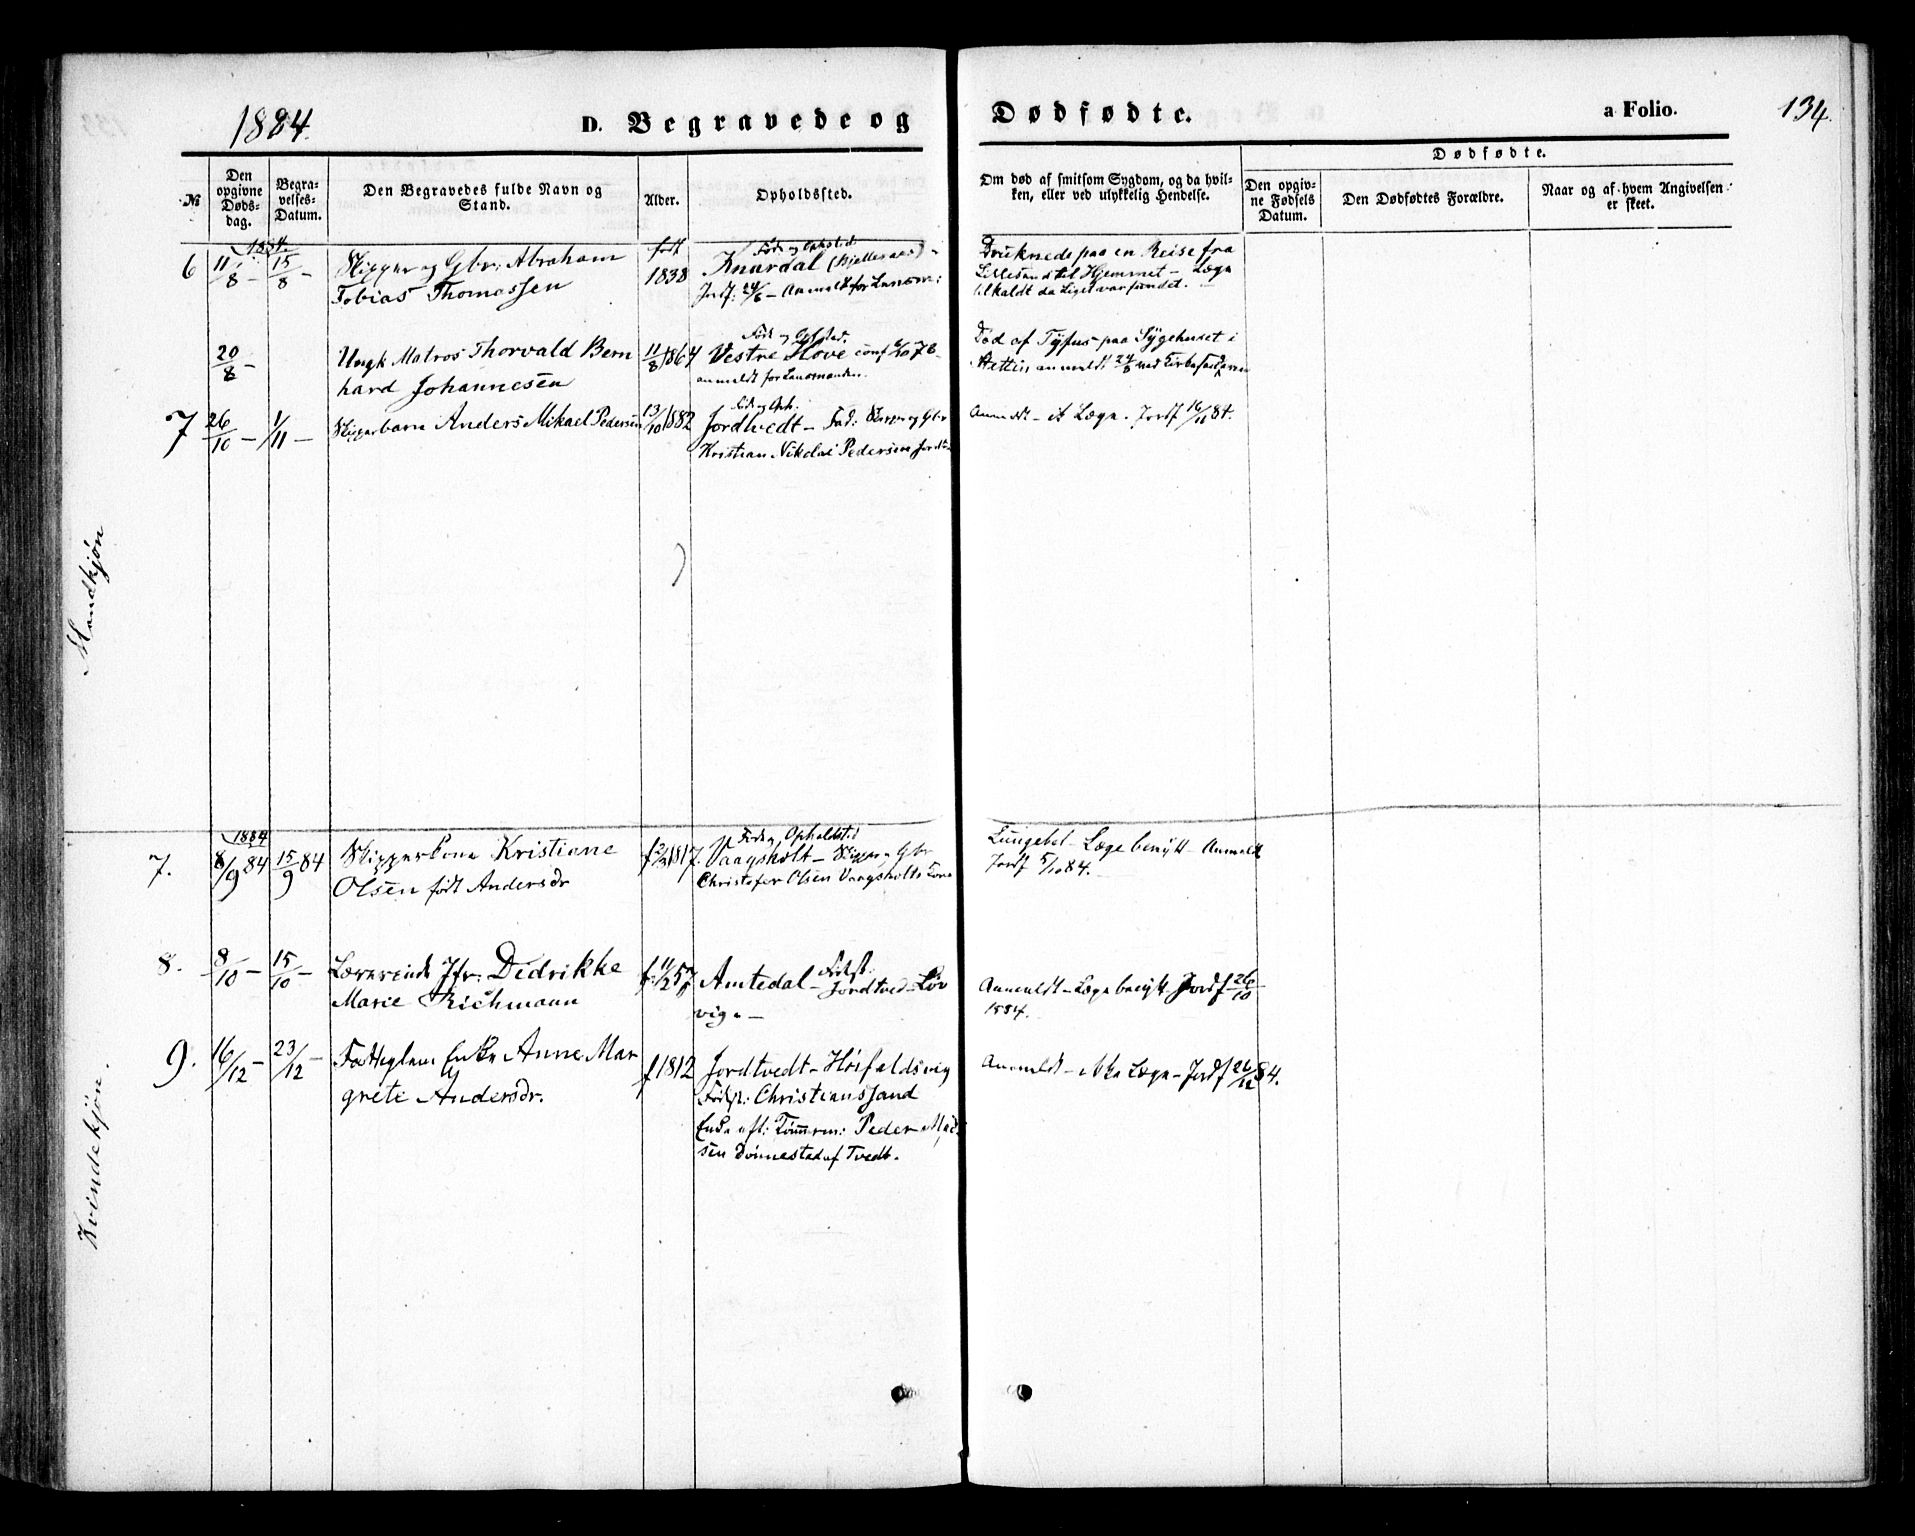 1884.
D. Begravede og
Dødfødte.
a Folio.
134.
№
Den opgivne Døds-dag.
Begra-velses-Datum.
Den Begravedes fulde Navn og Stand.
Alder.
Opholdssted.
Om død af smitsom Sygdom, og da hvil-ken, eller ved ulykkelig Hendelse.
Dødfødte.
Den opgiv-ne Fødsels Datum.
Den Dødfødtes Forældre.
Naar og af hvem Angivelsen er skeet.
Mandkjøn
1884.
6
11/8 -
15/8 -
Skipper og Gbr: Abraham
Tobias Thomassen
født
1838
Føde og Opholdsted
Knardal
Anmeldt for Lensm:
Druknede paa en Reise fra
Lillesand til Hjemmet - Læge
tilkaldt da Liget var fundet.
20/8 -
Ungk Matros Thorvald Bern
hard Johannesen
11/8 1864
Føde og Opsted.
Vestre Hove conf 6/10 78-
anmeldt for Lensmanden.
Død af Tyfus paa Sygehuset i
Stettin anmeldt 24/8
7
26/10 -
1/11 -
Skipperbarn Anders Mikael Pedersen
13/10 1882
Føde og Oph:
Jordtvedt - Fad: Skipper og Gbr
Kristian Nikolai Pedersen
Anmeldt - Læge. Jordf 16/11 84.
Kvindekjøn.
1884
7.
8/9 84
15/9 84
Skipperkone Kristiane
Olsen født Andersdr
f 2/3 1817.
Føde og Opholdsted
Vaagsholt - Skipper og Gbr
Christofer Olsen Vaagsholts Kone
Lungebet - Læge benytt - Anmeldt
Jordf 5/10 84.
8.
8/10 -
15/10 -
Lærerinde Jfr: Dedrikke
Marie Richmann
f: 11/2 57
Amtedal - Fødest:
Jordtved - Løv
vig -
Anmeldt - Læge benytt - Jordf 26/10
1884.
9.
16/12 -
23/12 -
Fattiglem Enke Anne Mar
grete Andersdr.
f 1812
Jordtvedt - Høifaldsvig
Fødest: Christianssand
Enke eft: Tømmerm: Peder
sen Dønnestad af Tvedt.
Anmeldt - ikke Læge - Jordf 26/12 84.